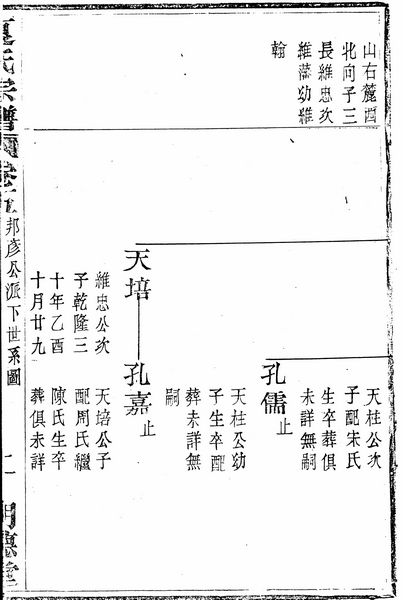 山右麓酉
牝向子三
長維忠次
維藩幼維
翰
天柱公次
子配宋氏
生卒葬俱
未詳無嗣
孔儒止
天柱公幼
子生卒配
葬未詳無
嗣
天培
孔嘉止
維忠公次
子乾隆三
十年乙酉
十月廿九
天培公子
配周氏繼
陳氏生卒
葬俱未詳
氏宗譜
邦彥公派下世系圖
明德堂